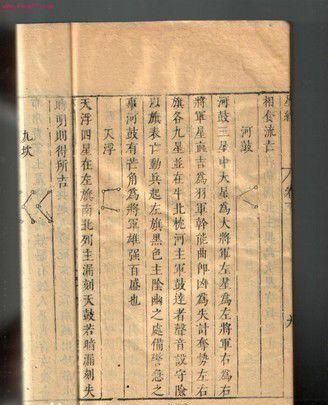 星經
卷下
九
相套流亡
河鼓
河鼓三星中大星為大將軍左星為左將軍右為右
將軍星直吉為羽軍幹能曲即凶為失計奪勢左右
旗各九星並在牛北枕河主軍鼓達者聲音設守險
以旗表亡動兵起左旗黑色主陰幽之處備警急之
事河鼓有芒角為將軍雄強百盛也
天浮
天浮四星在左旗南北列主漏刻天鼓若暗漏刻失
明則得所吉
九坎